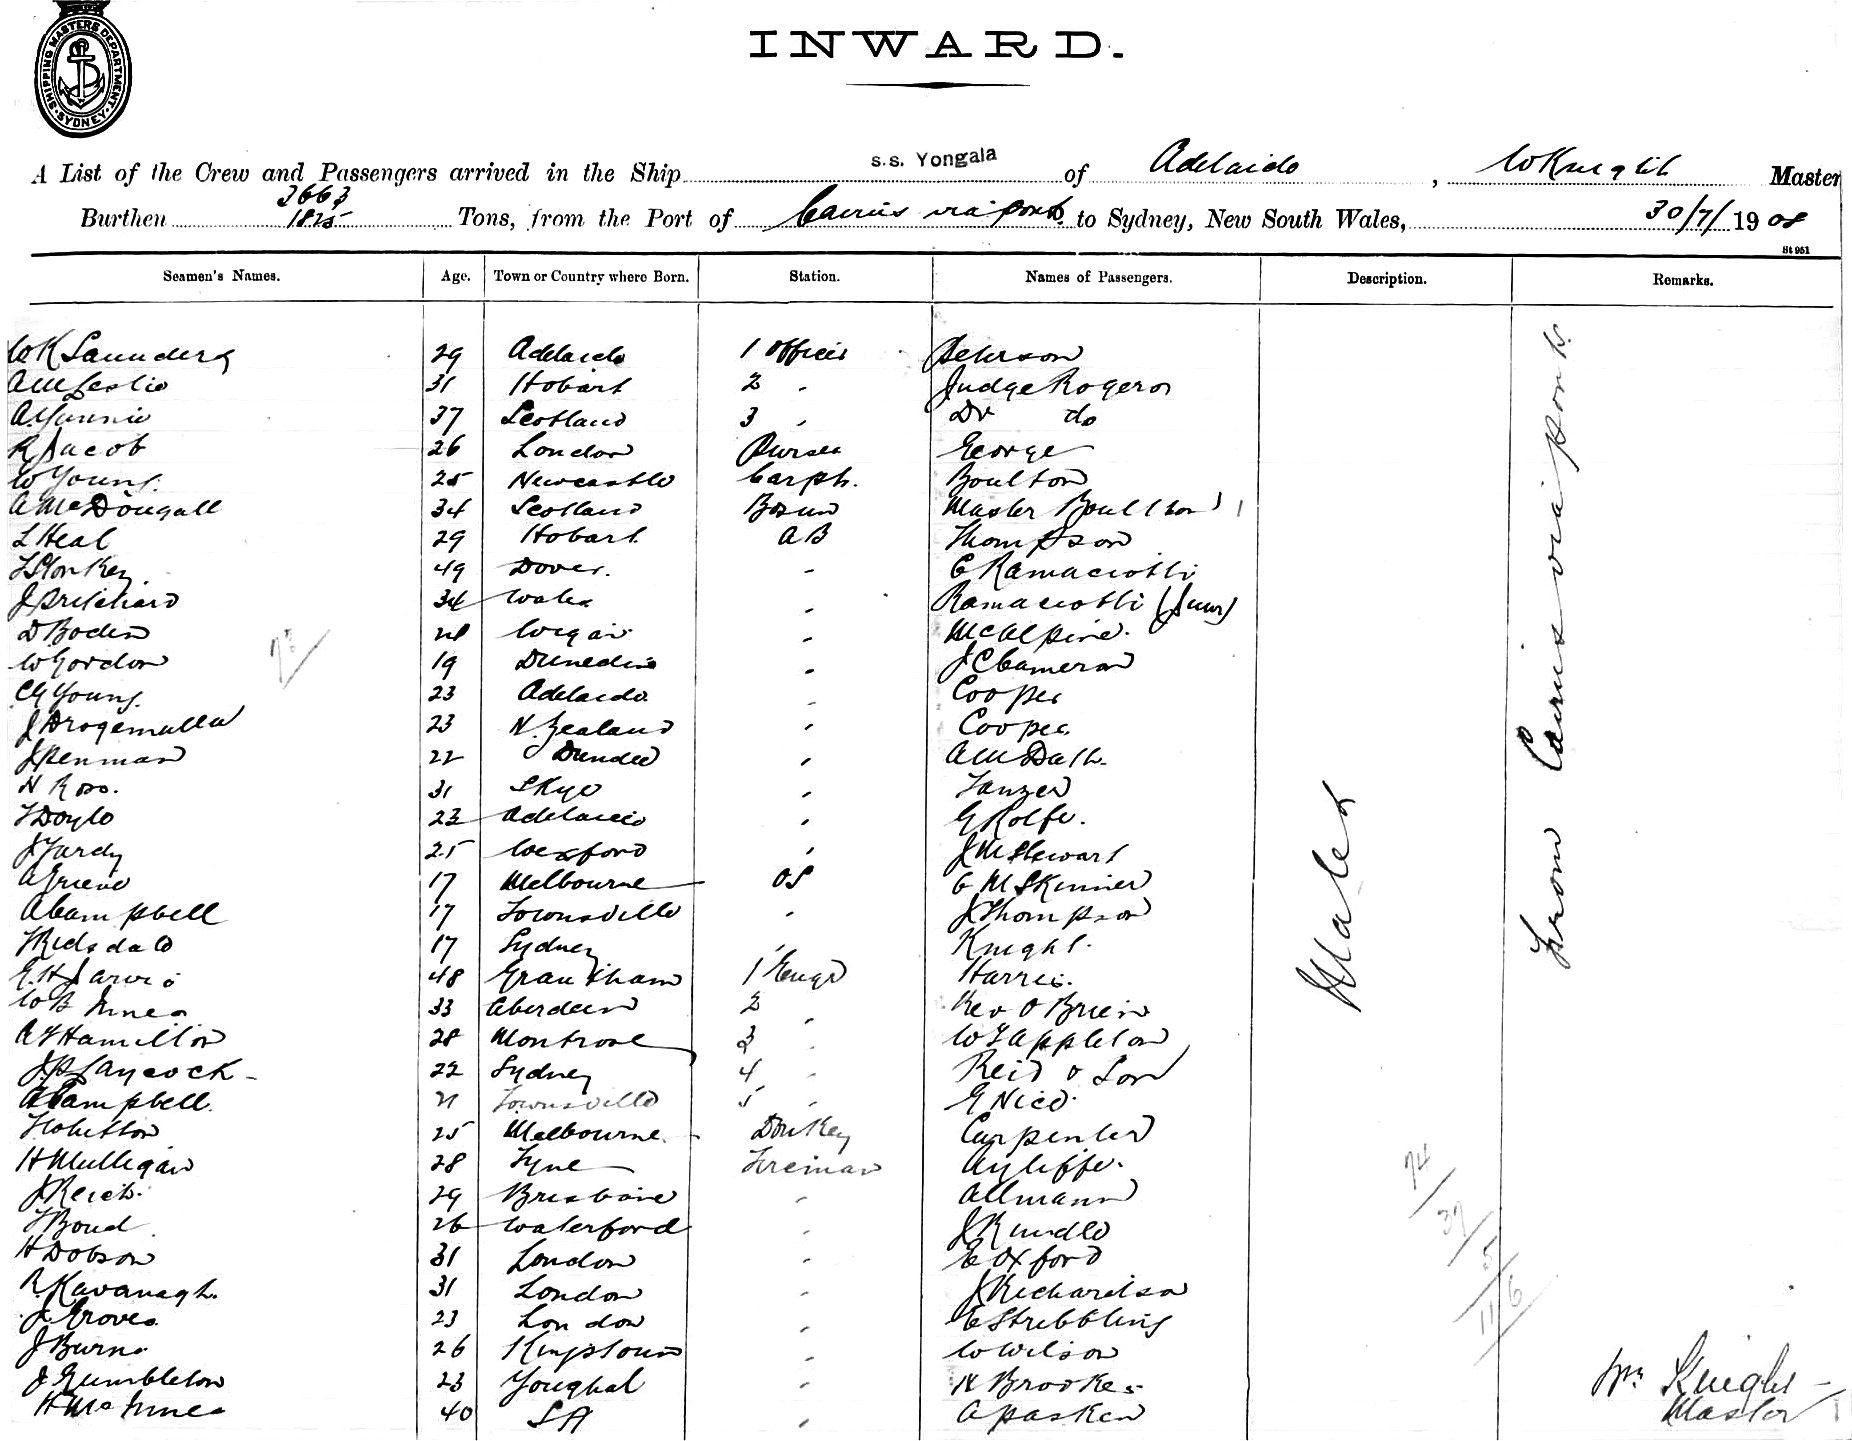 SHIPPING MASTERS DEPARTMENT
SYDNEY
INWARD.
A List of the Crew and Passengers arrived in the Ship s.s. Yongala of Adelaide, W Knight Master
3663
Burthen 1825 Tons, from the Port of Cairns via ports to Sydney, New South Wales, 30/7/1908
St 951
Seamen's Names. Age. Town or Country where Born. Station. Names of Passengers. Description. Remarks.
W K Saunders 29 Adelaide 1 Officer Peterson
A M Leslie 31 Hobart 2 " Judge Rogers
37 Scotland 3 " Dr do
R Jacob 26 London Purser George
W Young. 25 Newcastle Carptr. Boulton
A McDougall 34 Scotland Bosun Master Boulton
L Heal 29 Hobart AB Thompson
49 Dover. " C Ramaciotti
J Pritchard 34 Wales " Ramaciotti (Junr)
D Boden Wigan " McAlpine.
W Gordon 19 Dunedin " J C Cameron
C G Young. 23 Adelaide " Cooper
J Drogemuller 23 N. Zealand " Cooper
J Penman 22 Dundee "
N Ross. 31 Skye " Tanzer
T Doyle 23 Adelaide " G Rolfe.
25 Wexford " J M Stewart
A Grieve 17 Melbourne OS C M Skinner
A Campbell 17 Townsville " J Thompson
T Ridsdale 17 Sydney " Knight.
E H Jarvis 48 Grantham 1 Engr Harris.
W B Innes 33 Aberdeen 2 " Rev O'Brien
A F Hamilton 28 Montrose 3 " W T Appleton
J P Laycock 22 Sydney 4 " Reid & Son
A Campbell. 21 Townsville 5 " G Nice.
25 Melbourne. Donkey Carpenter
H Mulligan 28 Tyne Fireman Ayliffe.
J Reid. 29 Brisbane " Allmann
T Bond 26 Waterford " J Rundle
H Dobson 31 London " E Oxford
R Kavanagh. 31 London " J Richardson
J Groves 23 London " E Stribbling
J Burns 26 Kingstown " W Wilson
J Gumbleton 23 Youghal " H Brookes
H McInnes 40 SA " A Pasken
Males
From Cairns via ports
74
37
5
116
Wm Knight
Master